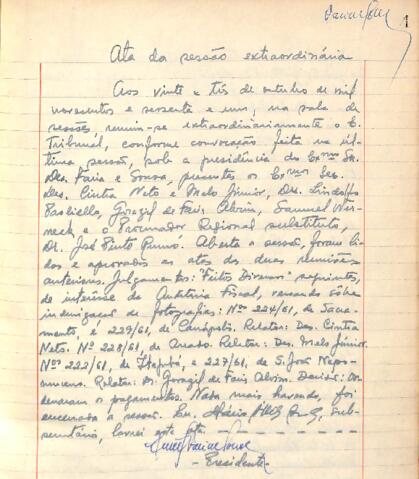 1
Ata da sessão extraordinária
Aos vinte e três de outubro de mil
novecentos e sessenta e um, na sala de
sessões, reuniu-se extraordinariamente o E.
Tribunal, conforme convocação feita na úl-
tima sessão, sob a presidência do Exmo Sr.
Des. Faria e Sousa, presentes os Exmos Srs.
Des. Cintra Neto e Melo Júnior, Drs. Lindolfo
Paoliello, Gorazil de Faria Alvim, Samuel Wer-
neck e o Procurador Regional substituto,
Dr. José Pinto Renno. Aberta a sessão, foram li-
das e aprovadas as atas das duas reuniões
anteriores. Julgamentos: "Feitos Diversos" seguintes,
de interêsse da Autoria Fiscal, versando sôbre
indenização de fotografias: Nos 224/61, de Sacra-
mento, e 229/61, de Canápolis. Relator: Des. Cintra
Neto. Nº 228/61, de Araxá. Relator: Des. Melo Júnior.
Nos 222/61, de Itajubá, e 227/61, de S. José Nepo-
muceno. Relator: Dr. Gorazil de Faria Alvim. Decisão: Or-
denaram os pagamentos. Nada mais havendo, foi
encerrada a sessão. Eu, sub-
secretário, lavrei esta ata. - - - - - - - -
- Presidente -